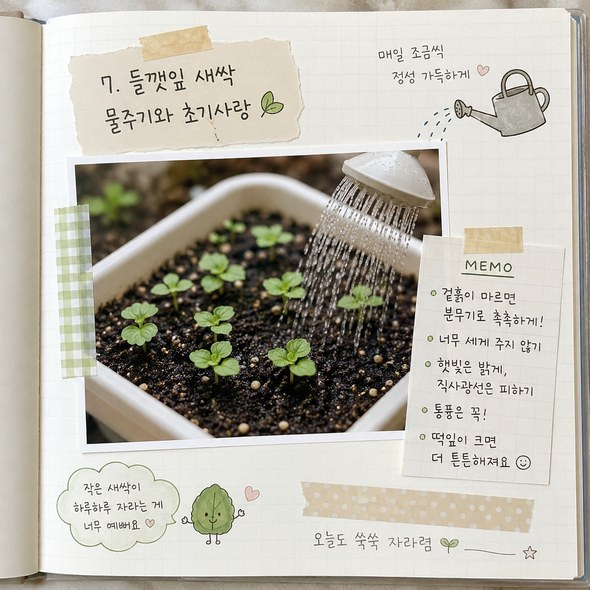 7. 들깻잎 새싹
물주기와 초기사랑
매일 조금씩
정성 가득하게
MEMO
겉흙이 마르면
분무기로 촉촉하게!
너무 세게 주지 않기
햇빛은 밝게,
직사광선은 피하기
통풍은 꼭!
떡잎이 크면
더 튼튼해져요
작은 새싹이
하루하루 자라는 게
너무 예뻐요
오늘도 쑥쑥 자라렴